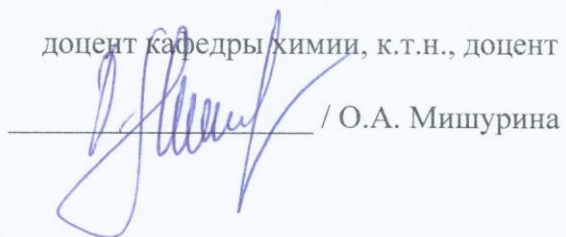 доцент кафедры химии, к.т.н., доцент
/ О.А. Мишурина